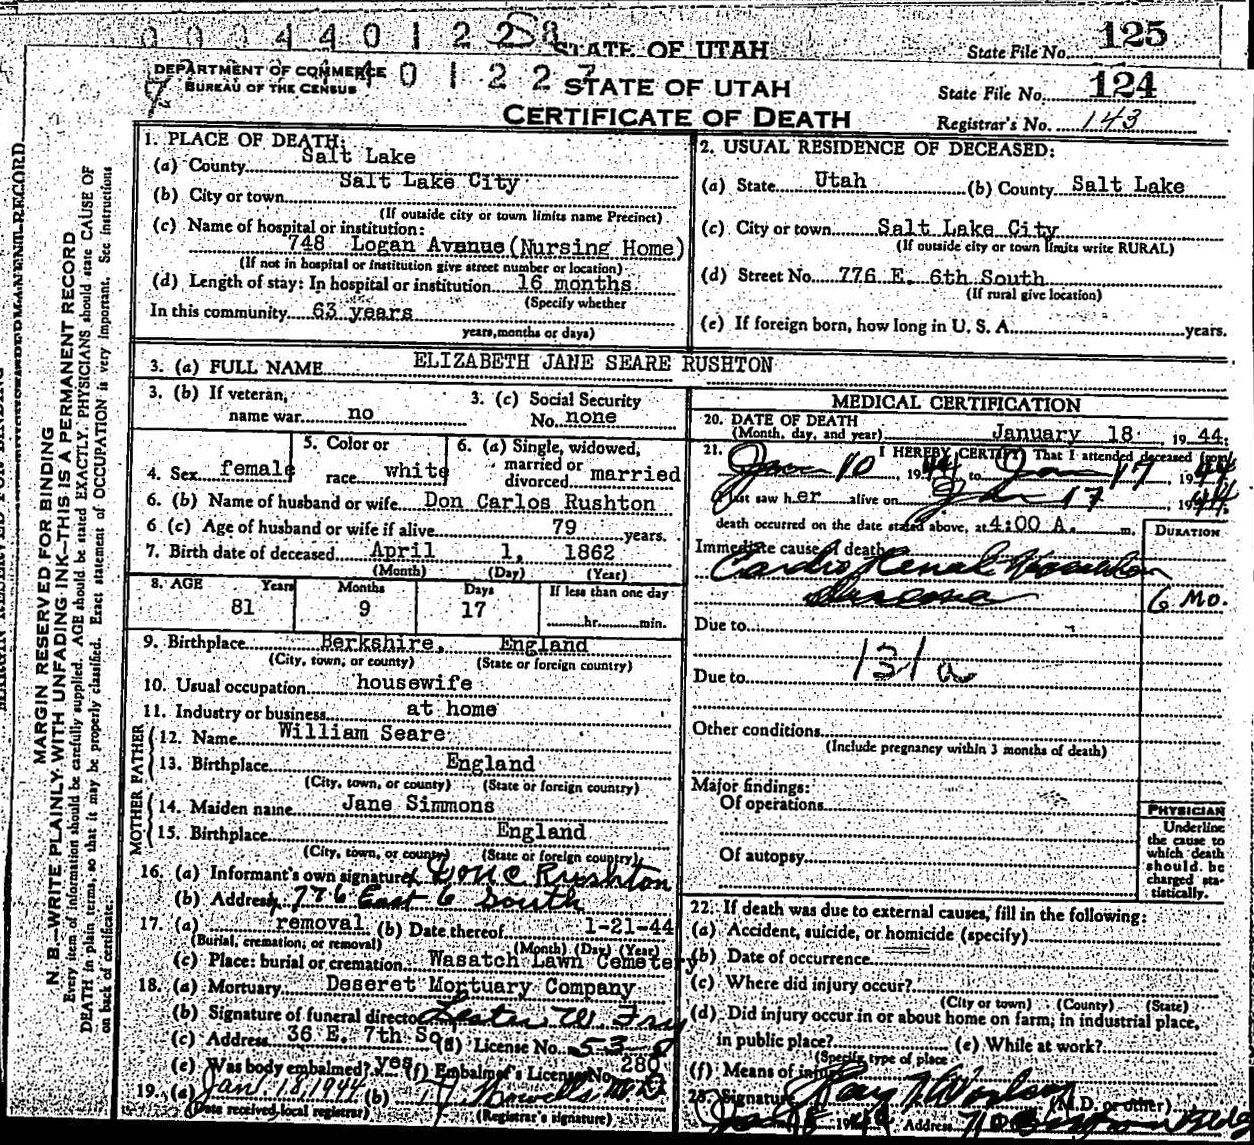 0 0 4 4 0 1 2 2 8
STATE OF UTAH
State File No. 125
DEPARTMENT OF COMMERCE
BUREAU OF THE CENSUS
4 0 1 2 2 7
STATE OF UTAH
CERTIFICATE OF DEATH
State File No. 124
Registrar's No. 143
MARGIN RESERVED FOR BINDING
N. B.—WRITE PLAINLY WITH UNFADING INK—THIS IS A PERMANENT RECORD
Every item of information should be carefully supplied. AGE should be stated EXACTLY. PHYSICIANS should state CAUSE OF
DEATH in plain terms, so that it may be properly classified. Exact statement of OCCUPATION is very important. See instructions
on back of certificate.
1. PLACE OF DEATH:
(a) County Salt Lake
(b) City or town Salt Lake City
(If outside city or town limits name Precinct)
(c) Name of hospital or institution:
748 Logan Avenue (Nursing Home)
(If not in hospital or institution give street number or location)
(d) Length of stay: In hospital or institution 16 months
(Specify whether
In this community 63 years
years, months or days)
2. USUAL RESIDENCE OF DECEASED:
(a) State Utah (b) County Salt Lake
(c) City or town Salt Lake City
(If outside city or town limits write RURAL)
(d) Street No. 776 E. 6th South
(If rural give location)
(e) If foreign born, how long in U. S. A. years.
3. (a) FULL NAME ELIZABETH JANE SEARE RUSHTON
3. (b) If veteran,
name war no
3. (c) Social Security
No. none
4. Sex female
5. Color or
race white
6. (a) Single, widowed,
married or
divorced married
6. (b) Name of husband or wife Don Carlos Rushton
6 (c) Age of husband or wife if alive 79 years.
7. Birth date of deceased April 1, 1862
(Month) (Day) (Year)
8. AGE Years Months Days If less than one day
81 9 17 hr. min.
9. Birthplace Berkshire, England
(City, town, or county) (State or foreign country)
10. Usual occupation housewife
11. Industry or business at home
FATHER
12. Name William Seare
13. Birthplace England
(City, town, or county) (State or foreign country)
MOTHER
14. Maiden name Jane Simmons
15. Birthplace England
(City, town, or county) (State or foreign country)
16. (a) Informant's own signature Don C Rushton
(b) Address 776 East 6 South
17. (a) removal (b) Date thereof 1-21-44
(Burial, cremation, or removal) (Month) (Day) (Year)
(c) Place: burial or cremation Wasatch Lawn Cemetery
18. (a) Mortuary Deseret Mortuary Company
(b) Signature of funeral director Lester W. Fry
(c) Address 36 E. 7th So. (d) License No. 53-8
(e) Was body embalmed? yes (f) Embalmer's License No. 280
19. (a) Jan 18, 1944 (b) M.D.
(Date received local registrar) (Registrar's signature)
MEDICAL CERTIFICATION
20. DATE OF DEATH
(Month, day, and year) January 18, 1944:
21. I HEREBY CERTIFY That I attended deceased from
Jan 10, 1944 to Jan 17, 1944
I last saw her alive on Jan 17, 1944
death occurred on the date stated above, at 4:00 A. m.
DURATION
Immediate cause of death
Cardio Renal Vascular
Disease 6 Mo.
Due to
131a
Due to
Other conditions
(Include pregnancy within 3 months of death)
Major findings:
Of operations
Of autopsy
PHYSICIAN
Underline
the cause to
which death
should be
charged sta-
tistically.
22. If death was due to external causes, fill in the following:
(a) Accident, suicide, or homicide (specify)
(b) Date of occurrence
(c) Where did injury occur?
(City or town) (County) (State)
(d) Did injury occur in or about home on farm, in industrial place,
in public place? (e) While at work?
(Specify type of place
(f) Means of injury
23. Signature (M.D. or other)
Address